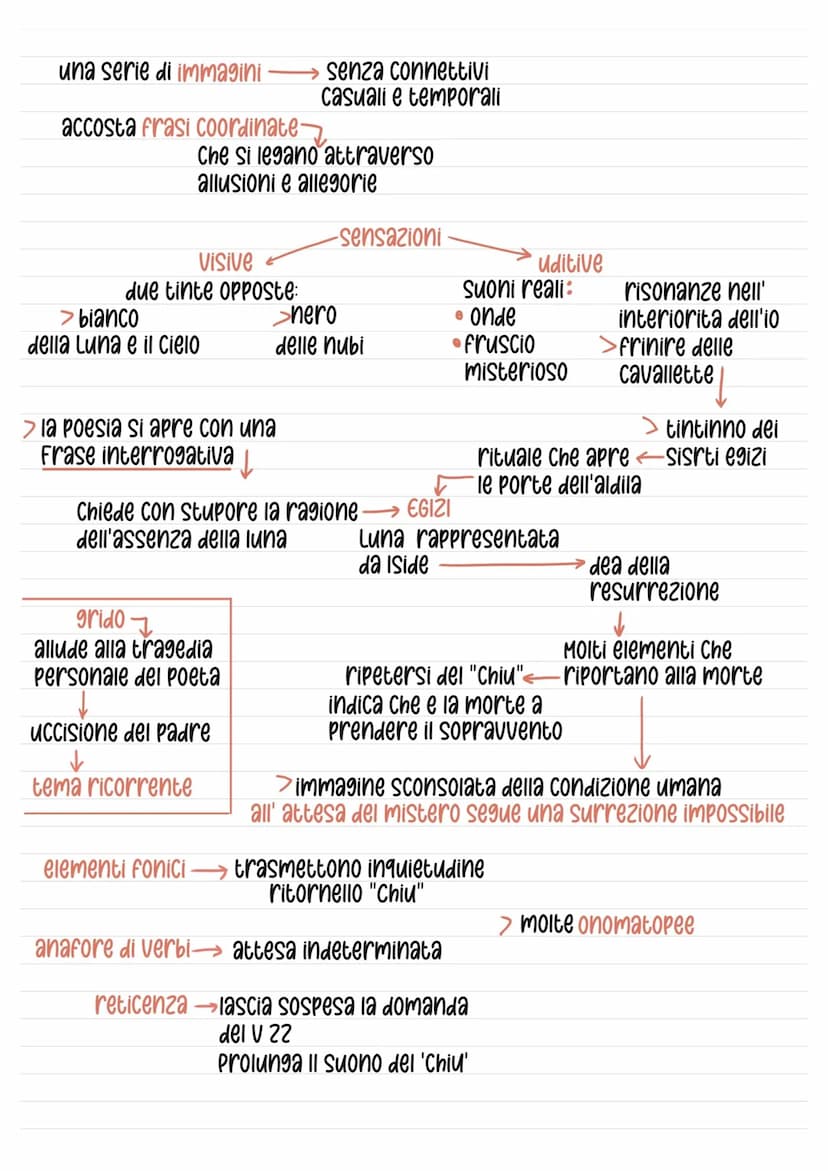 una serie di immagini → senza connettivi
casuali e temporali
accosta frasi coordinate
che si legano attraverso
allusioni e allegorie
sensazioni
visive
uditive
due tinte opposte:
> bianco
della Luna e il cielo
> nero
delle nubi
suoni reali:
• onde
• fruscio
misterioso
risonanze nell'
interiorita dell'io
> frinire delle
cavallette
> tintinno dei
sisrti egizi
rituale che apre
le porte dell'aldila
> la poesia si apre con una
Frase interrogativa
chiede con stupore la ragione → EGIZI
dell'assenza della luna
Luna rappresentata
da Iside → dea della
resurrezione
Molti elementi che
riportano alla morte
ripetersi del "Chiu"
indica che e la morte a
prendere il sopravvento
grido
allude alla tragedia
personale del poeta
uccisione del padre
tema ricorrente
> immagine sconsolata della condizione umana
all' attesa del mistero segue una surrezione impossibile
elementi fonici → trasmettono inquietudine
ritornello "Chiu"
> molte onomatopee
anafore di verbi → attesa indeterminata
reticenza → lascia sospesa la domanda
del V 22
Prolunga Il suono del 'Chiu'